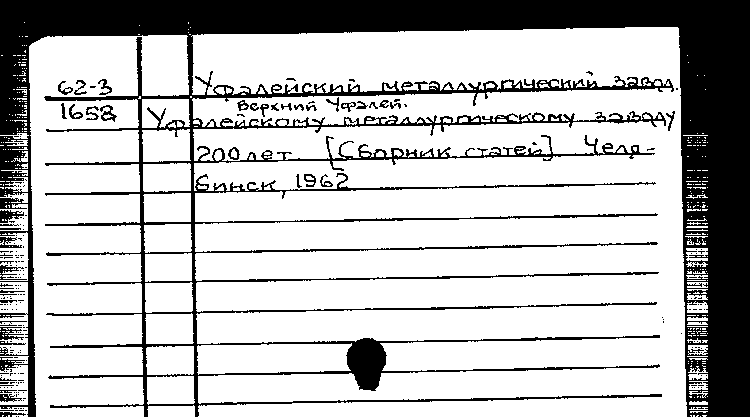 62-3 Уфалейский металлургический завод.
Верхний Уфалей.
1658 Уфалейскому металлургическому заводу
200 лет. [Сборник статей] Челя-
бинск, 1962